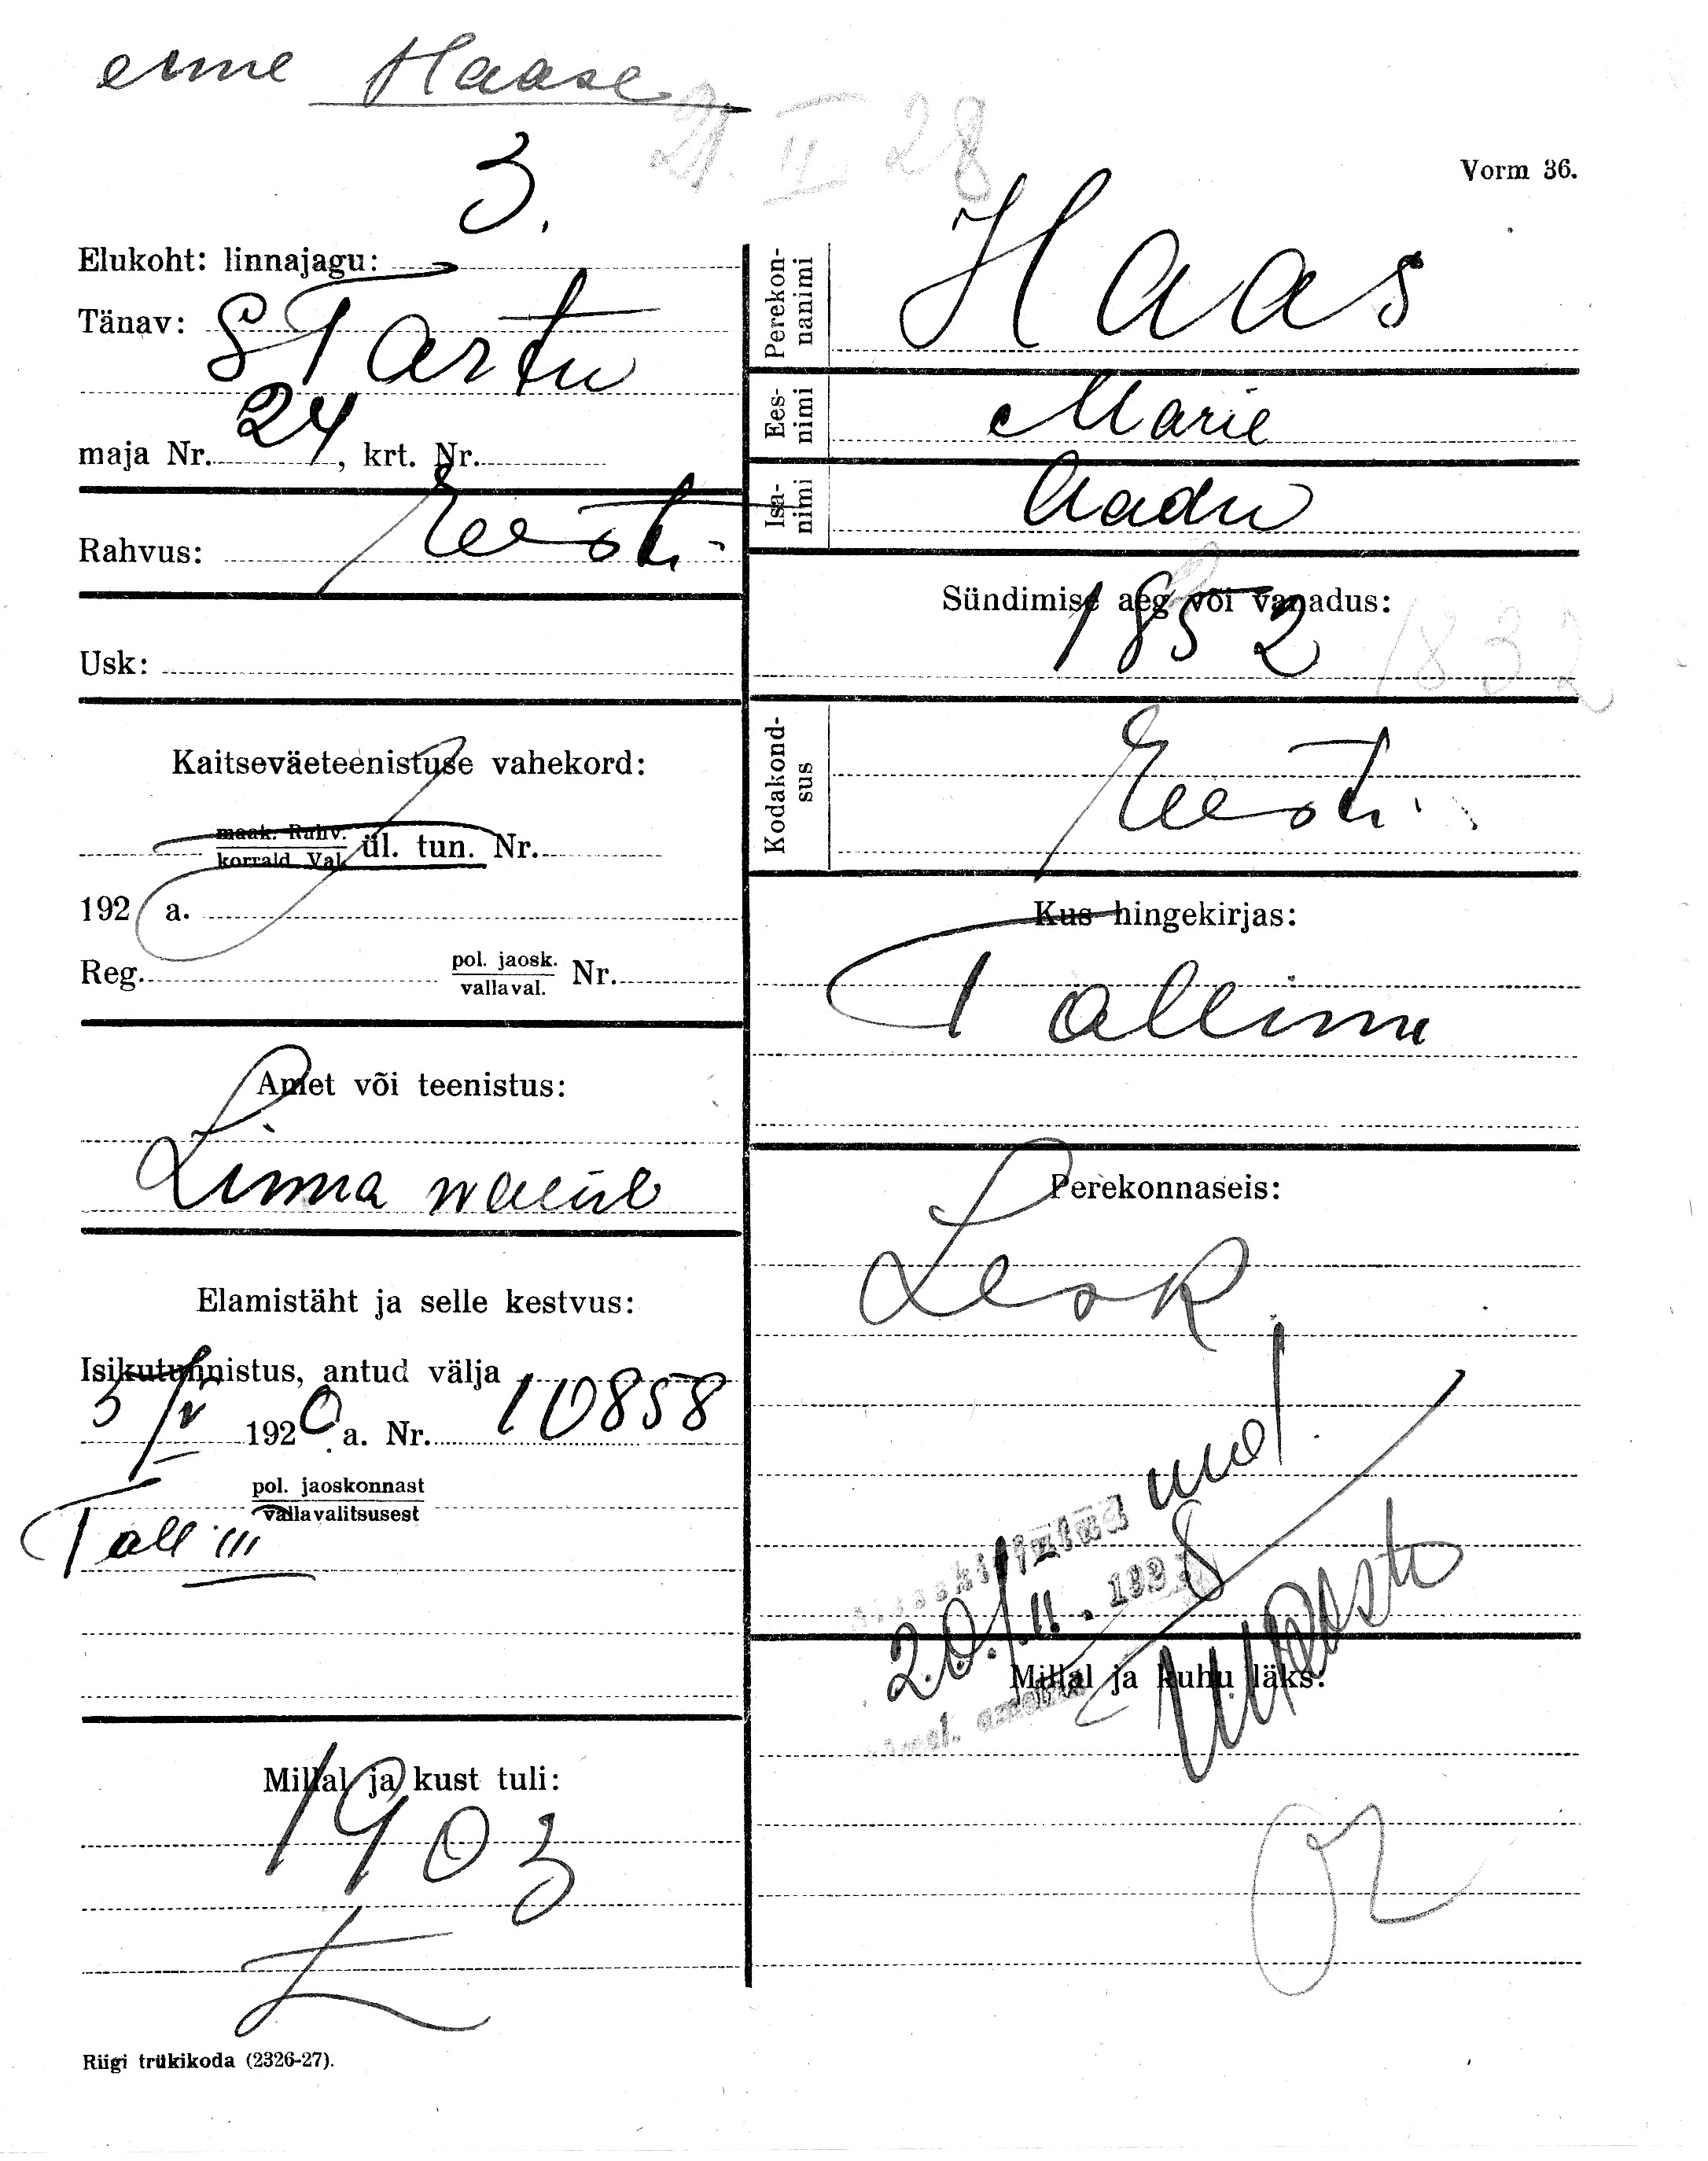 enne Haase
21. II 28
Vorm 36.
3.
Elukoht: linnajagu:
Tänav: S Tartu
maja Nr. 24, krt. Nr.
Rahvus: Eesti
Usk:
Kaitseväeteenistuse vahekord:
maak. Rahv.
korrald. Val. ül. tun. Nr.
192 a.
Reg. pol. jaosk.
vallaval. Nr.
Amet või teenistus:
Linna
Elamistäht ja selle kestvus:
Isikutunnistus, antud välja
5/V 1920 a. Nr. 10858
pol. jaoskonnast
vallavalitsusest
Tall III
Millal ja kust tuli:
1903
Riigi trükikoda (2326-27).
Perekon-
nanimi
Haas
Ees-
nimi
Marie
Isa-
nimi
Aadu
Sündimise aeg või vanadus:
1852 1832
Kodakond-
sus
Eesti
Kus hingekirjas:
Tallinn
Perekonnaseis:
Lesk
20. II. 1928
Millal ja kuhu läks: